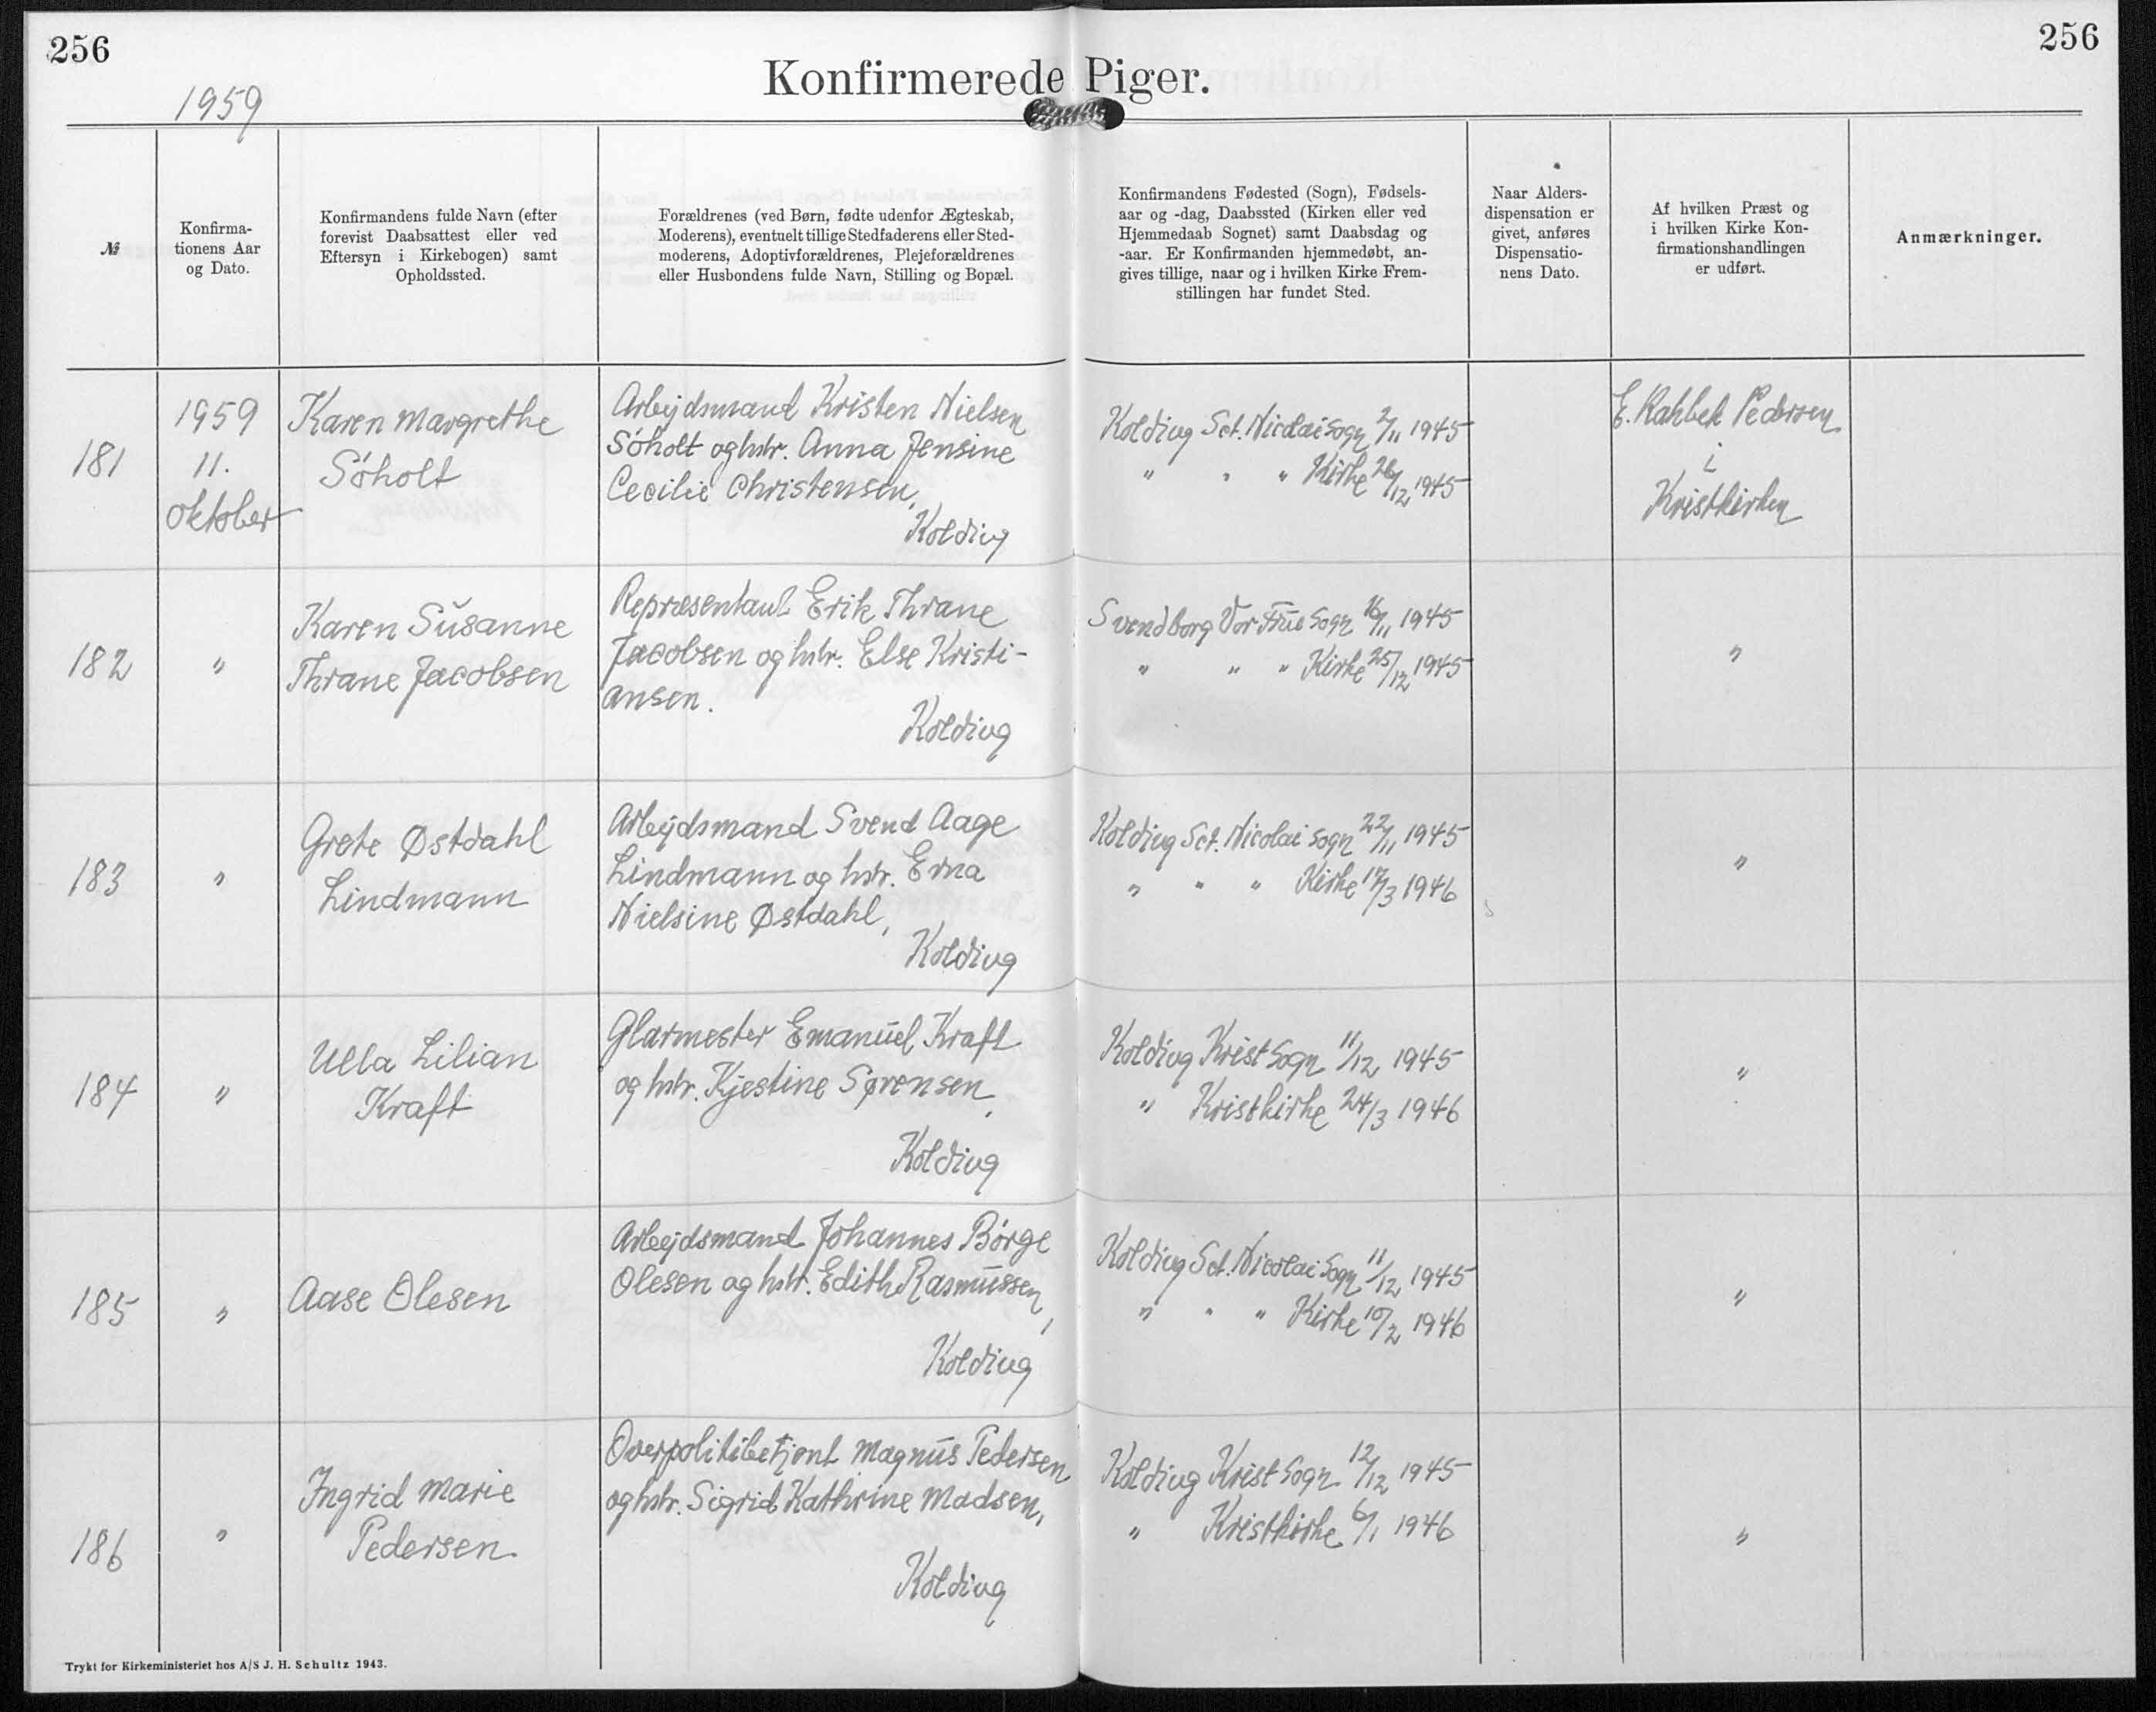 256
256
Konfirmerede Piger.
1959
№
Konfirma-
tionens Aar
og Dato.
Konfirmandens fulde Navn (efter
forevist Daabsattest eller ved
Eftersyn i Kirkebogen) samt
Opholdssted.
Forældrenes (ved Børn, fødte udenfor Ægteskab,
Moderens), eventuelt tillige Stedfaderens eller Sted-
moderens, Adoptivforældrenes, Plejeforældrenes
eller Husbondens fulde Navn, Stilling og Bopæl.
Konfirmandens Fødested (Sogn), Fødsels-
aar og -dag, Daabssted (Kirken eller ved
Hjemmedaab Sognet) samt Daabsdag og
-aar. Er Konfirmanden hjemmedøbt, an-
gives tillige, naar og i hvilken Kirke Frem-
stillingen har fundet Sted.
Naar Alders-
dispensation er
givet, anføres
Dispensatio-
nens Dato.
Af hvilken Præst og
i hvilken Kirke Kon-
firmationshandlingen
er udført.
Anmærkninger.
181
1959
11.
oktober
Karen Margrethe
Søholt
Arbejdsmand Kristen Nielsen
Søholt og hstr. Anna Jensine
Cecilie Christensen,
Kolding
Kolding Sct. Nicolai Sogn 2/11 1945
" " " Kirke 26/12 1945
E. Rahbek Pedersen
i
Kristkirken
182
"
Karen Susanne
Thrane Jacobsen
Repræsentant Erik Thrane
Jacobsen og hstr. Else Kristi-
ansen.
Kolding
Svendborg Vor Frue Sogn 16/11 1945
" " " Kirke 25/12 1945
"
183
"
Grete Østdahl
Lindmann
Arbejdsmand Svend Aage
Lindmann og hstr. Erna
Nielsine Østdahl,
Kolding
Kolding Sct. Nicolai Sogn 22/11 1945
" " " Kirke 17/3 1946
"
184
"
Ulla Lilian
Kraft
Glarmester Emanuel Kraft
og hstr. Kjestine Sørensen,
Kolding
Kolding Krist Sogn 11/12 1945
" Kristkirke 24/3 1946
"
185
"
Aase Olesen
Arbejdsmand Johannes Börge
Olesen og hstr. Edith Rasmussen,
Kolding
Kolding Sct. Nicolai Sogn 11/12 1945
" " " Kirke 10/2 1946
"
186
"
Ingrid Marie
Pedersen
Overpolitibetjent Magnus Pedersen
og hstr. Sigrid Kathrine Madsen,
Kolding
Kolding Krist Sogn 12/12 1945
" Kristkirke 6/1 1946
"
Trykt for Kirkeministeriet hos A/S J. H. Schultz 1943.